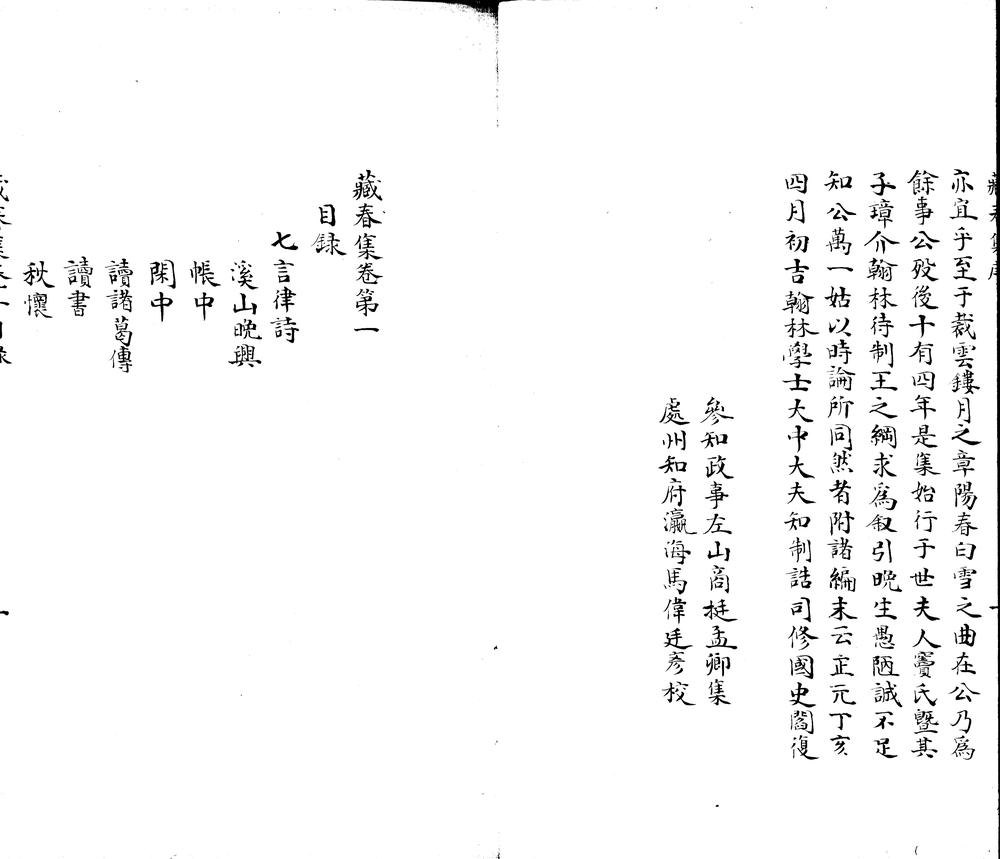 藏春集序
亦宜乎至于裁雲鏤月之章陽春白雪之曲在公乃爲
餘事公殁後十有四年是集始行于世夫人竇氏曁其
子璋介翰林待制王之綱求爲叙引晩生愚陋誠不足
知公萬一姑以時論所同然者附諸編末云至元丁亥
四月初吉翰林學士大中大夫知制誥司修國史閻復
參知政事左山商挺孟卿集
處州知府瀛海馬偉廷彦校
藏春集卷第一
目録
七言律詩
溪山晚興
帳中
閑中
讀諸葛傳
讀書
秋懷
藏春集卷一目録
一